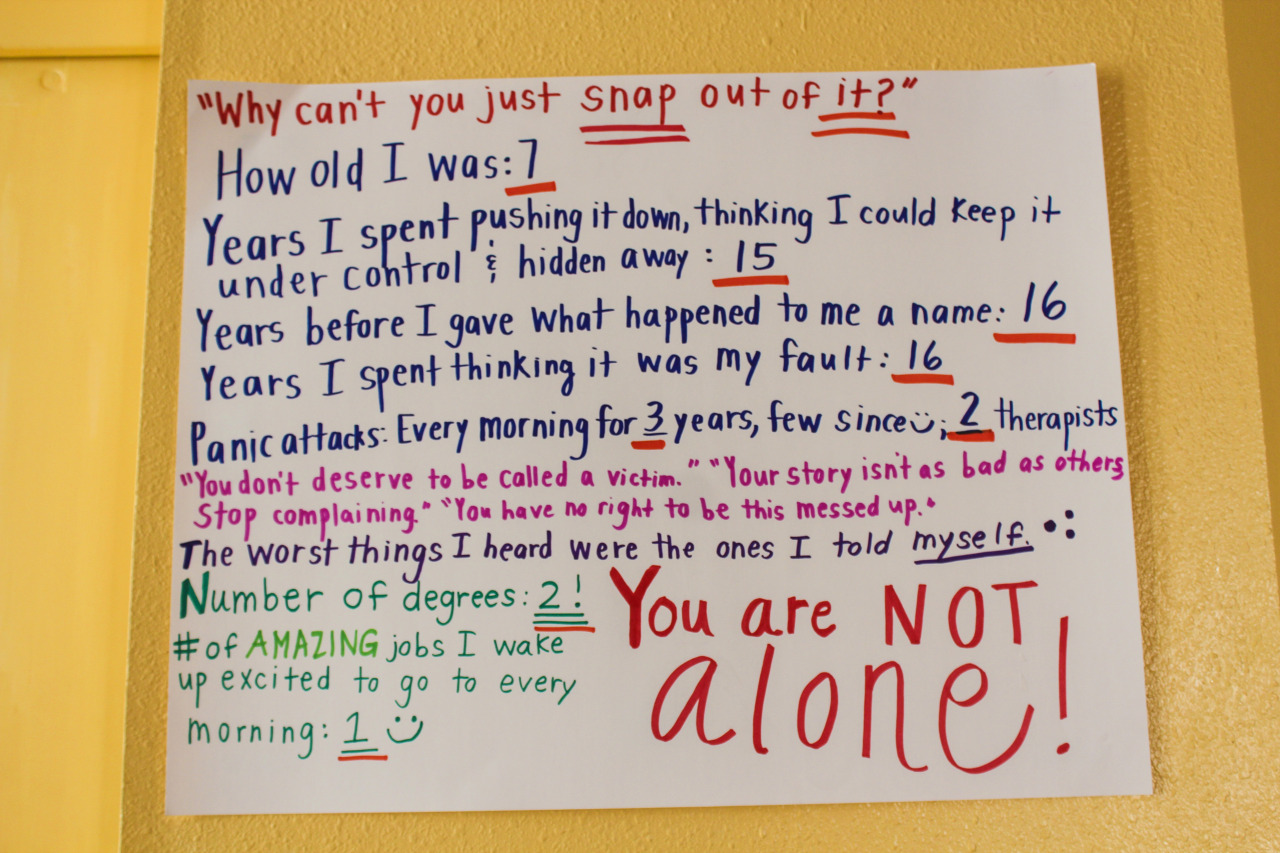 "Why can't you just snap out of it?"
How old I was: 7
Years I spent pushing it down, thinking I could keep it
under control & hidden away : 15
Years before I gave what happened to me a name: 16
Years I spent thinking it was my fault: 16
Panic attacks: Every morning for 3 years, few since :); 2 therapists
"You don't deserve to be called a victim." "Your story isn't as bad as others
Stop complaining." "You have no right to be this messed up."
The worst things I heard were the ones I told myself.
Number of degrees: 2!
# of AMAZING jobs I wake
up excited to go to every
morning: 1 :)
You are NOT
alone!